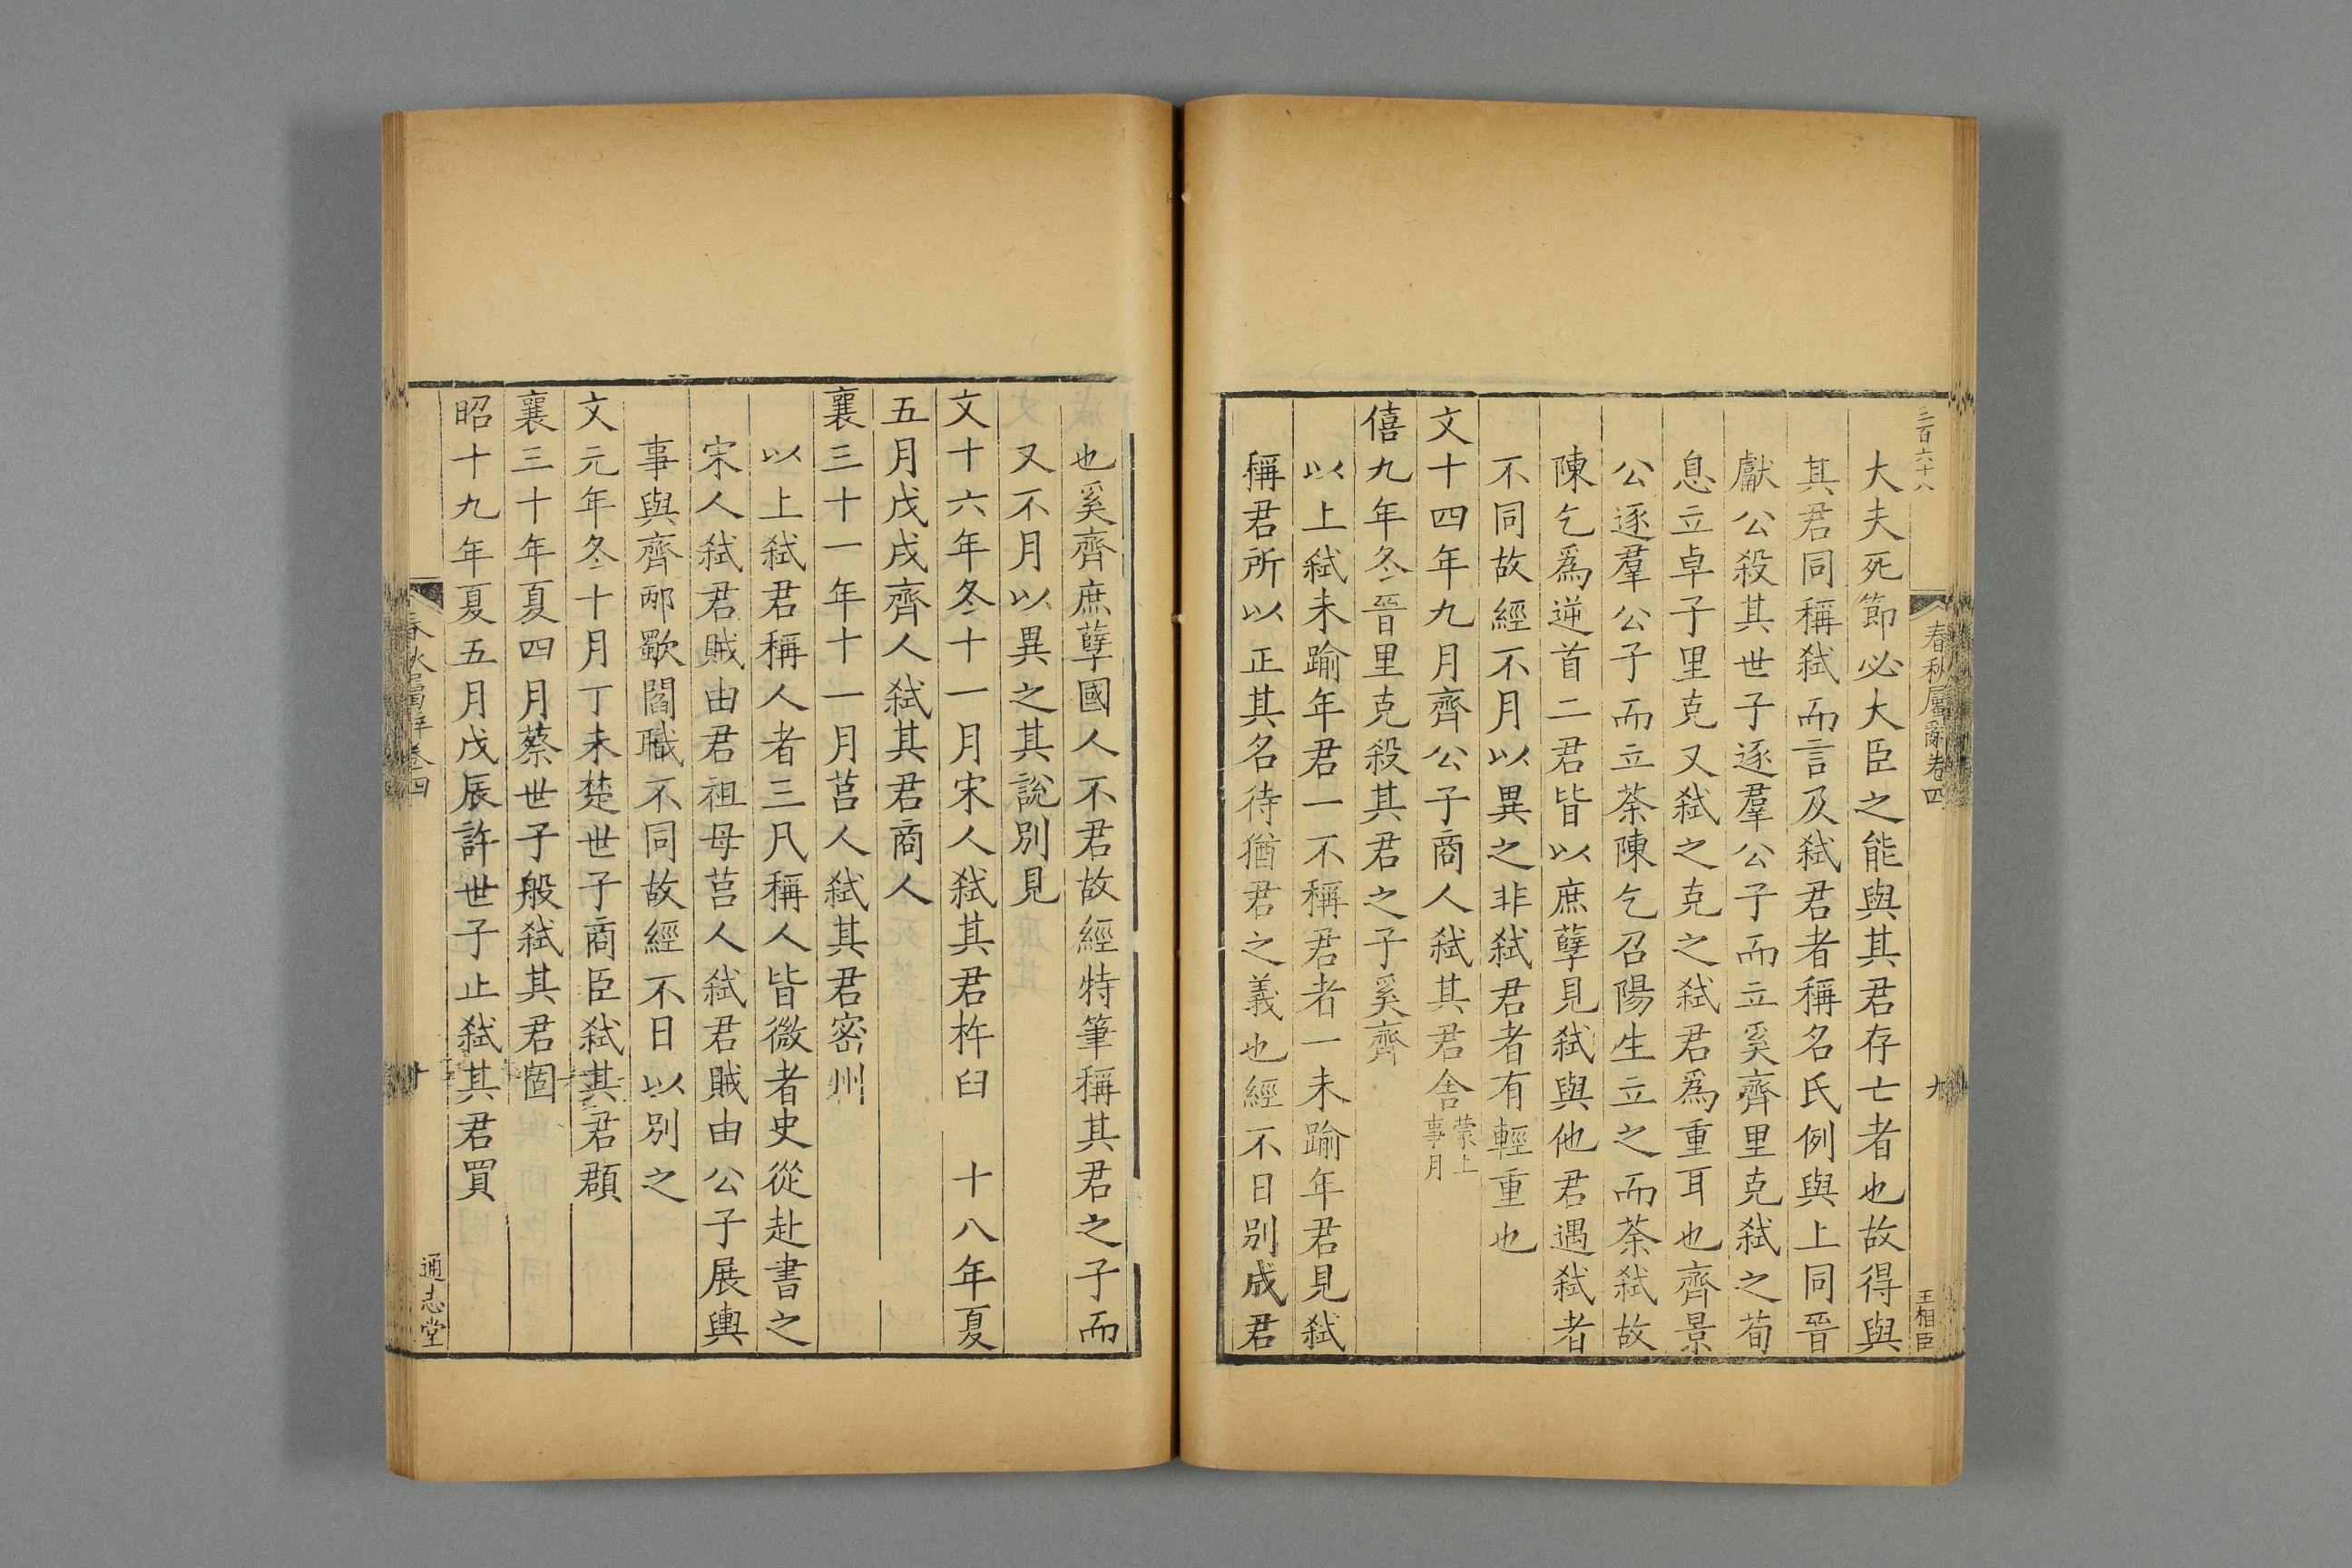 三百六十八
春秋屬辭卷四
九
王相臣
大夫死節必大臣之能與其君存亡者也故得與
其君同稱弒而言及弒君者稱名氏例與上同晉
獻公殺其世子逐羣公子而立奚齊里克弒之荀
息立卓子里克又弒之克之弒君爲重耳也齊景
公逐羣公子而立荼陳乞召陽生立之而荼弒故
陳乞爲逆首二君皆以庶孽見弒與他君遇弒者
不同故經不月以異之非弒君者有輕重也
文十四年九月齊公子商人弒其君舍蒙上事月
僖九年冬晉里克殺其君之子奚齊
以上弒未踰年君一不稱君者一未踰年君見弒
稱君所以正其名待猶君之義也經不日別成君
也奚齊庶孽國人不君故經特筆稱其君之子而
又不月以異之其說別見
文十六年冬十一月宋人弒其君杵臼 十八年夏
五月戊戌齊人弒其君商人
襄三十一年十一月莒人弒其君密州
以上弒君稱人者三凡稱人皆微者史從赴書之
宋人弒君賊由君祖母莒人弒君賊由公子展輿
事與齊邴歜閻職不同故經不日以別之
文元年冬十月丁未楚世子商臣弒其君頵
襄三十年夏四月蔡世子般弒其君固
昭十九年夏五月戊辰許世子止弒其君買
春秋屬辭卷四
十
通志堂